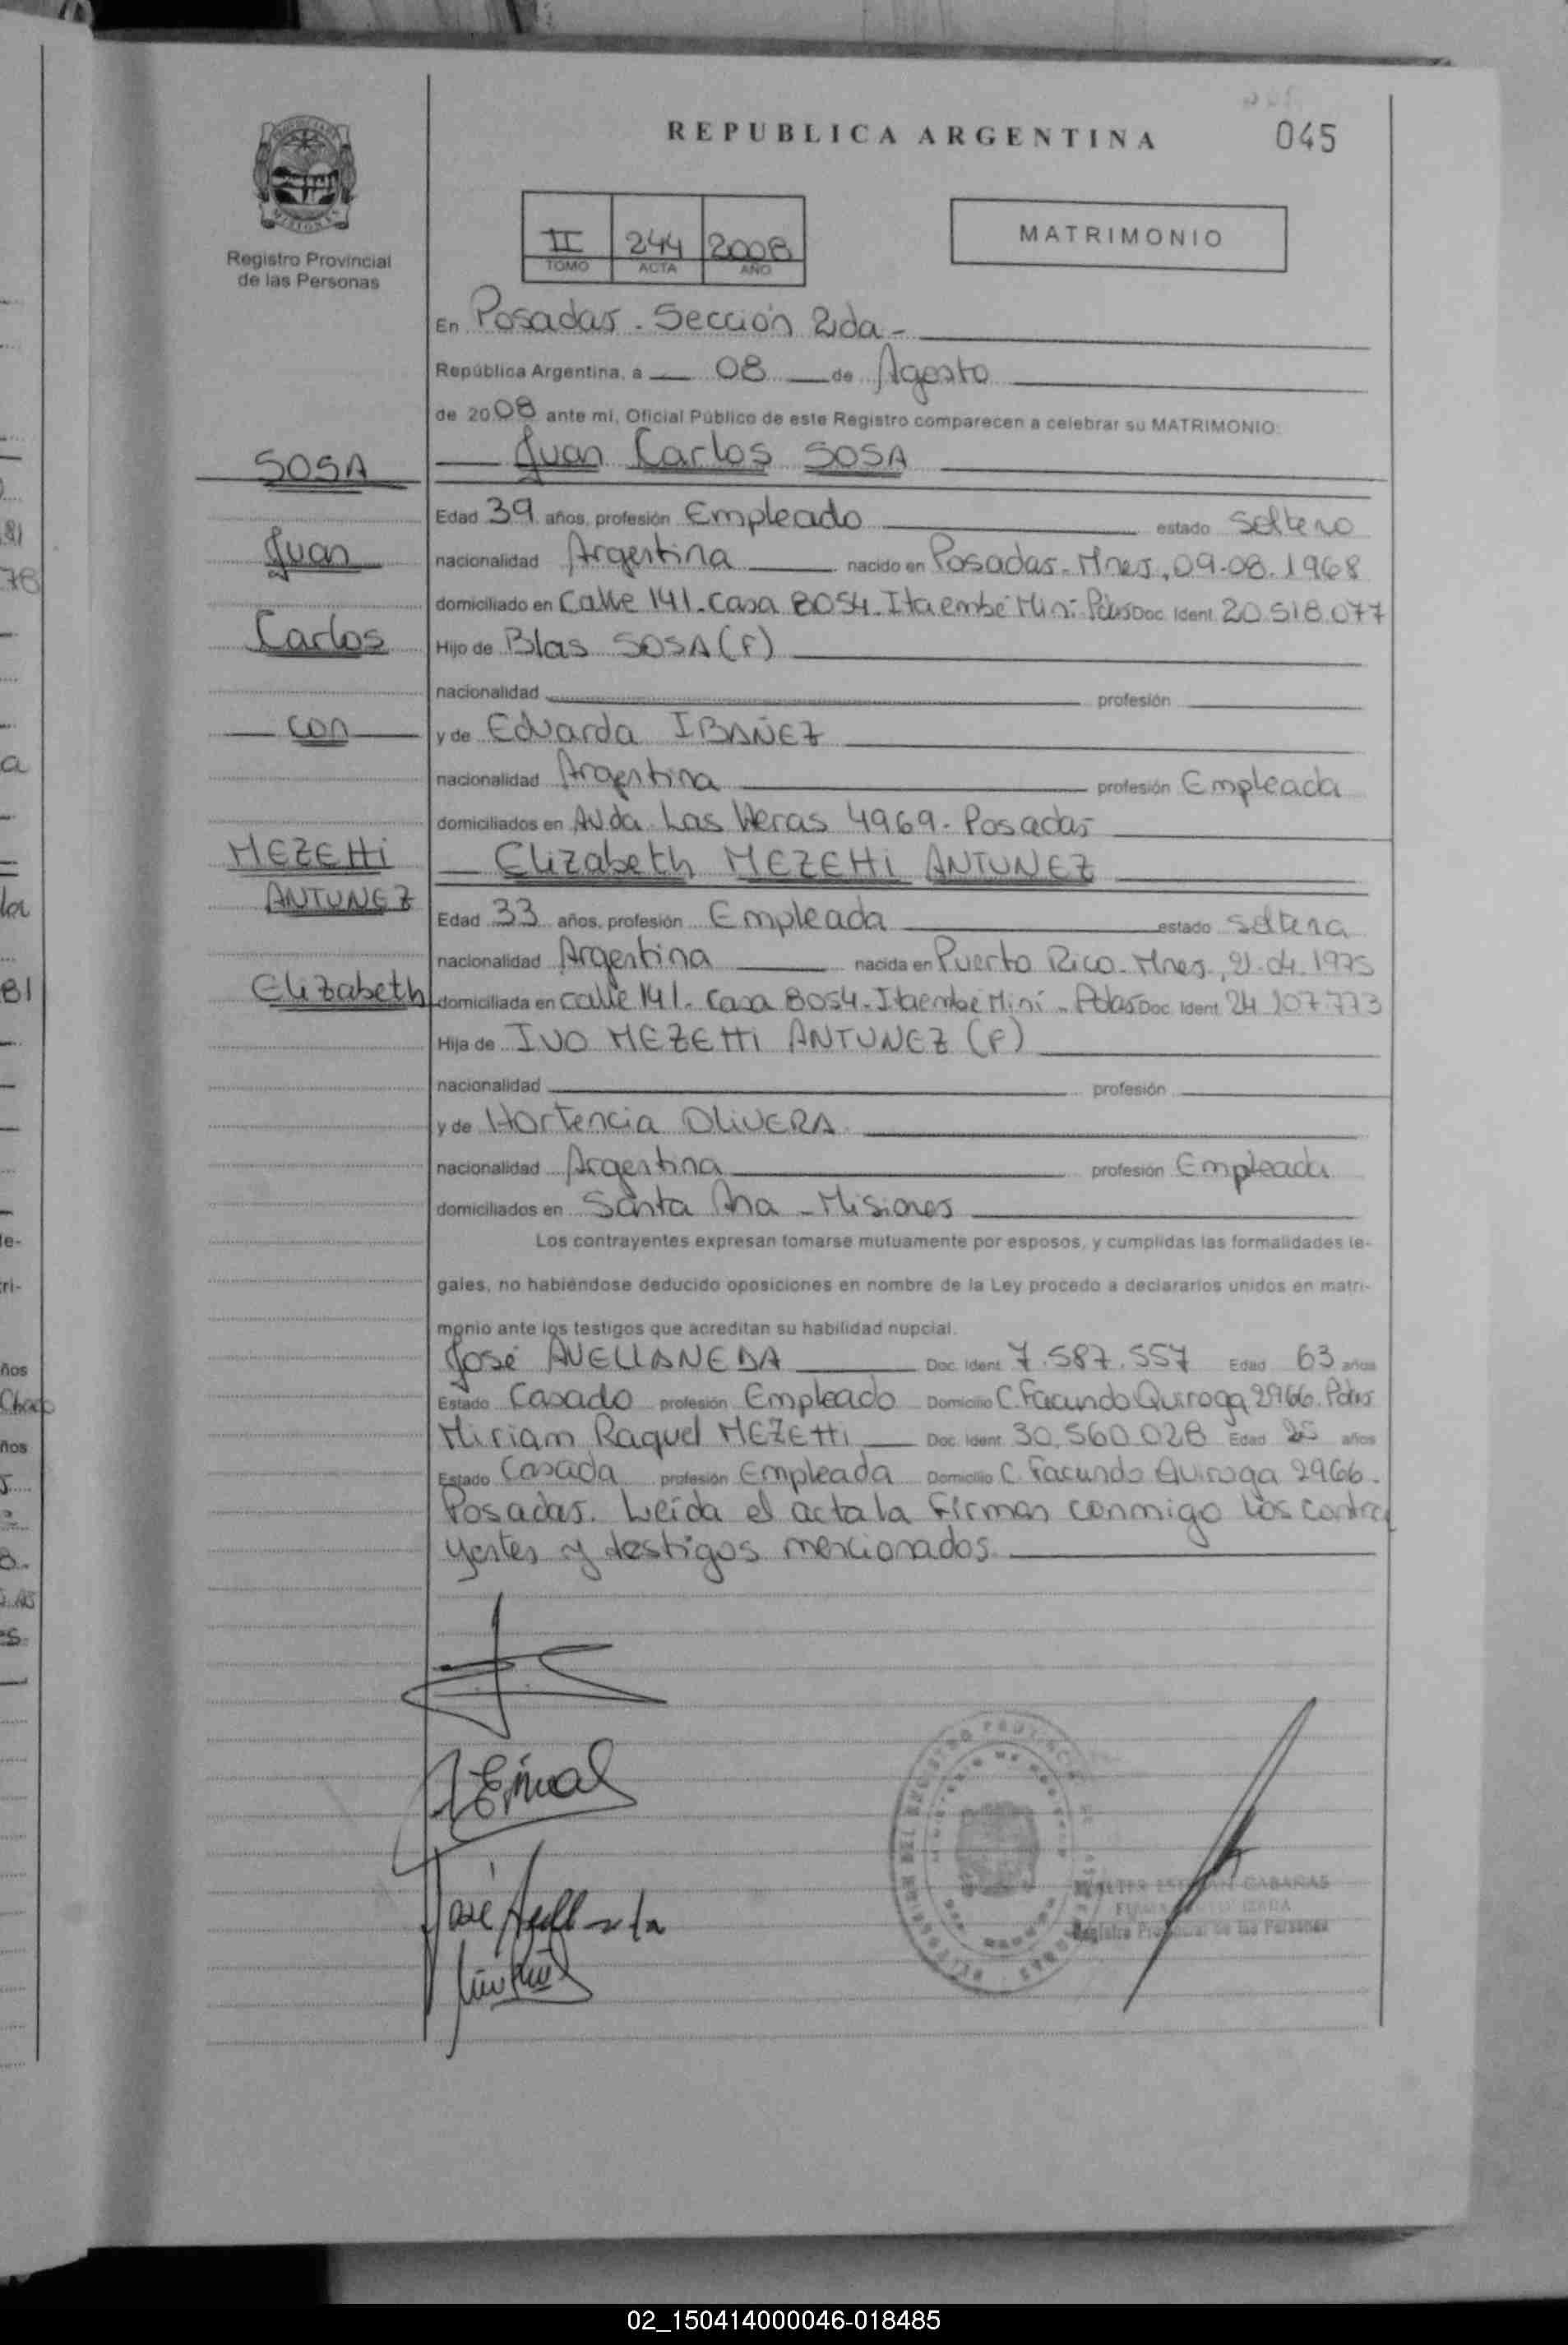 REPUBLICA ARGENTINA
045
Registro Provincial
de las Personas
II 244 2008
TOMO ACTA AÑO
MATRIMONIO
En Posadas - Sección 2da -
República Argentina, a 08 de Agosto
de 2008 ante mi, Oficial Público de este Registro comparecen a celebrar su MATRIMONIO:
SOSA
Juan Carlos SOSA
Edad 39 años, profesión Empleado estado Soltero
Juan
nacionalidad Argentina nacido en Posadas - Mnes, 09-08-1968
domiciliado en Calle 141 - Casa 8054 - Itaembé Mini - Pdas Doc. Ident. 20.518.077
Carlos
Hijo de Blas SOSA (F)
nacionalidad profesión
con
y de Eduarda IBAÑEZ
nacionalidad Argentina profesión Empleada
domiciliados en Avda. Las Heras 4969 - Posadas
MEZETTi
ANTUNEZ
Elizabeth MEZETTi ANTUNEZ
Edad 33 años, profesión Empleada estado Soltera
nacionalidad Argentina nacida en Puerto Rico - Mnes, 21-04-1975
Elizabeth
domiciliada en calle 141 - Casa 8054 - Itaembé Mini - Pdas Doc. Ident. 24.207.773
Hija de IVO MEZETTi ANTUNEZ (F)
nacionalidad profesión
y de Hortencia OLiVERA
nacionalidad Argentina profesión Empleada
domiciliados en Santa Ana - Misiones
Los contrayentes expresan tomarse mutuamente por esposos, y cumplidas las formalidades le-
gales, no habiéndose deducido oposiciones en nombre de la Ley procedo a declararlos unidos en matri-
monio ante los testigos que acreditan su habilidad nupcial.
José AVELLANEDA Doc. Ident. 7.587.557 Edad 63 años
Estado Casado profesión Empleado Domicilio C. Facundo Quiroga 2966. Pdas
Miriam Raquel MEZETTi Doc. Ident. 30.560.028 Edad 25 años
Estado Casada profesión Empleada Domicilio C. Facundo Quiroga 2966 -
Posadas. Leída el acta la firman conmigo los contra
yentes y testigos mencionados.
Registro Provincial de las Personas
02_150414000046-018485